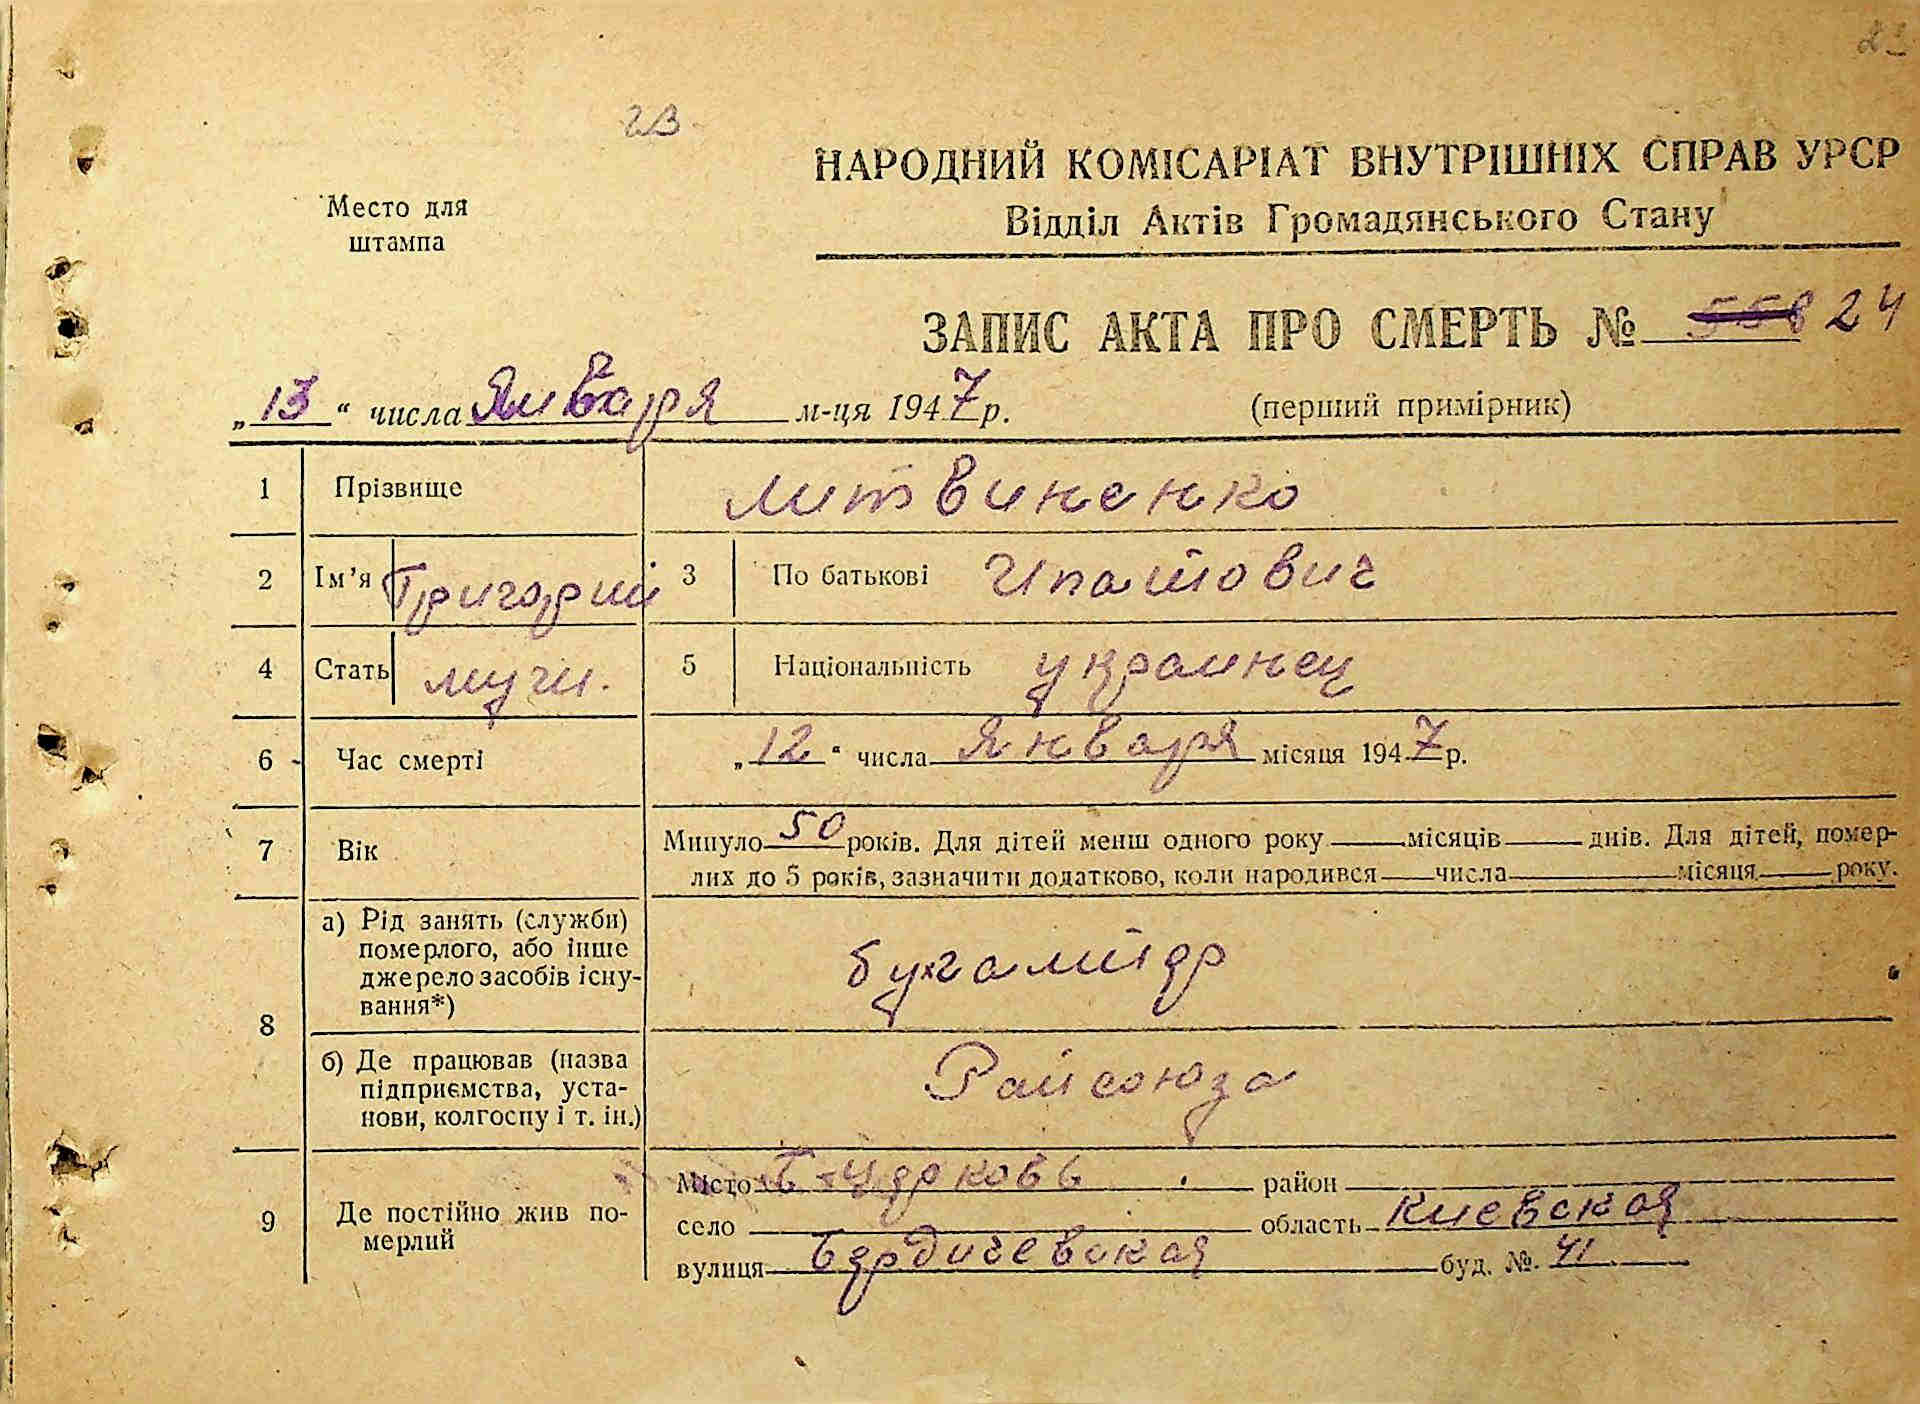 23
НАРОДНИЙ КОМІСАРІАТ ВНУТРІШНІХ СПРАВ УРСР
Место для штампа
Відділ Актів Громадянського Стану
ЗАПИС АКТА ПРО СМЕРТЬ № 558 24
„13“ числа Января м-ця 1947 р. (перший примірник)
1 Прізвище Литвиненко
2 Ім’я Григорий 3 По батькові Ипатович
4 Стать мужч. 5 Національність украинец
6 Час смерті „12“ числа Января місяця 1947 р.
7 Вік Минуло 50 років. Для дітей менш одного року місяців днів. Для дітей, помер-
лих до 5 років, зазначити додатково, коли народився числа місяця року.
8 а) Рід занять (служби)
померлого, або інше
джерело засобів існу-
вання*) бухгалтер
б) Де працював (назва
підприємства, уста-
нови, колгоспу і т. ін.) Райсоюза
9 Де постійно жив по-
мерлий
Місто район
село область Киевская
вулиця Бердичевская буд. № 41